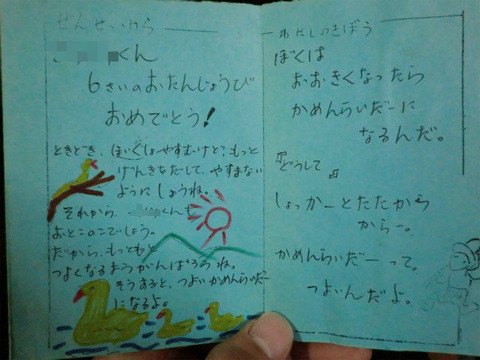 せんせいから
くん
6さいのおたんじょうび
おめでとう!
ときどき、ほいくしょやすむけど、もっと
げんきをだして、やすまない
ようにしょうね。
それから、くんも
おとこのこでしょう。
だから、もっともっと
つよくなるようがんばろうね。
そうすると、つよいかめんらいだー
になるよ。
わたしのきぼう
ぼくは
おおきくなったら
かめんらいだーに
なるんだ。
『どうして』
しょっかーとたたから
からー。
かめんらいだーって。
つよいんだよ。